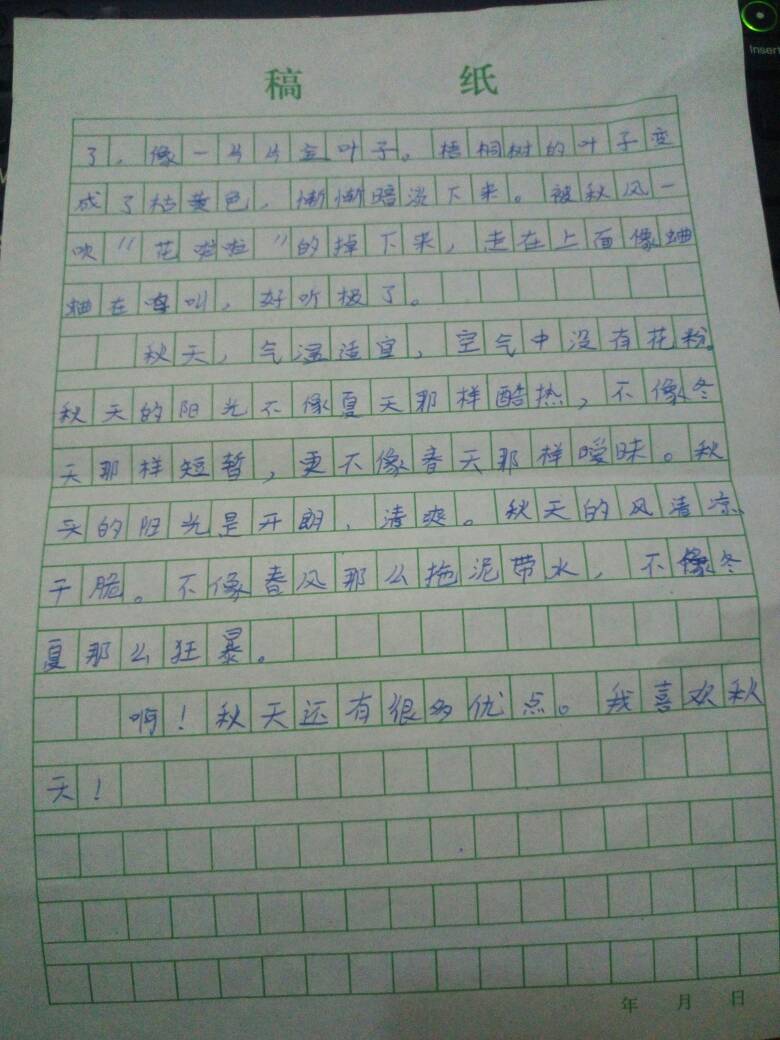 稿 纸
了，像一片片金叶子。梧桐树的叶子变
成了枯黄色，渐渐暗淡下来。被秋风一
吹“花啦啦”的掉下来，走在上面像蛐
蛐在鸣叫，好听极了。
秋天，气温适宜，空气中没有花粉。
秋天的阳光不像夏天那样酷热，不像冬
天那样短暂，更不像春天那样暧昧。秋
天的阳光是开朗、清爽。秋天的风清凉、
干脆。不像春风那么拖泥带水，不像冬
夏那么狂暴。
啊！秋天还有很多优点。我喜欢秋
天！
年 月 日
Insert